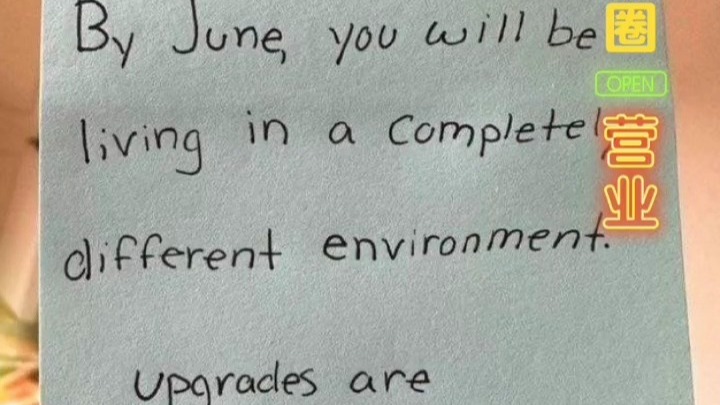 By June, you will be
living in a completely
different environment.
upgrades are
圈
OPEN
营
业